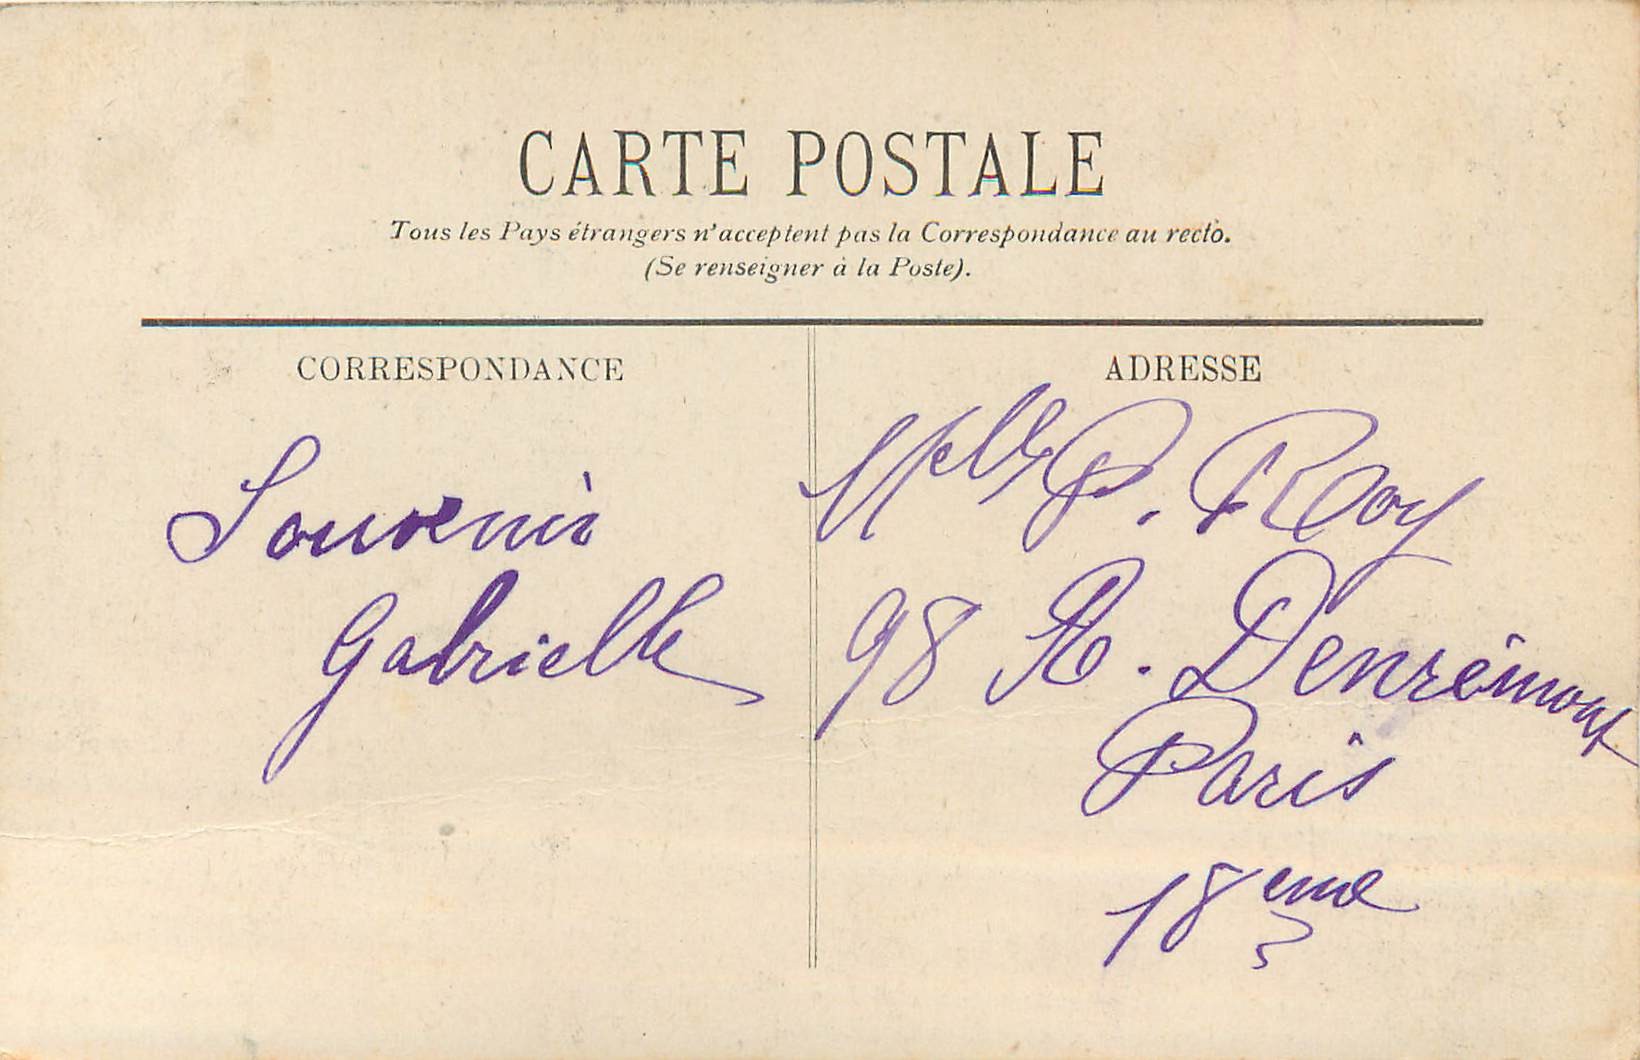 CARTE POSTALE
Tous les Pays étrangers n'acceptent pas la Correspondance au recto.
(Se renseigner à la Poste).
CORRESPONDANCE
Souvenir
Gabrielle
ADRESSE
Melle P. Roy
98 R. Denrémont
Paris
18eme